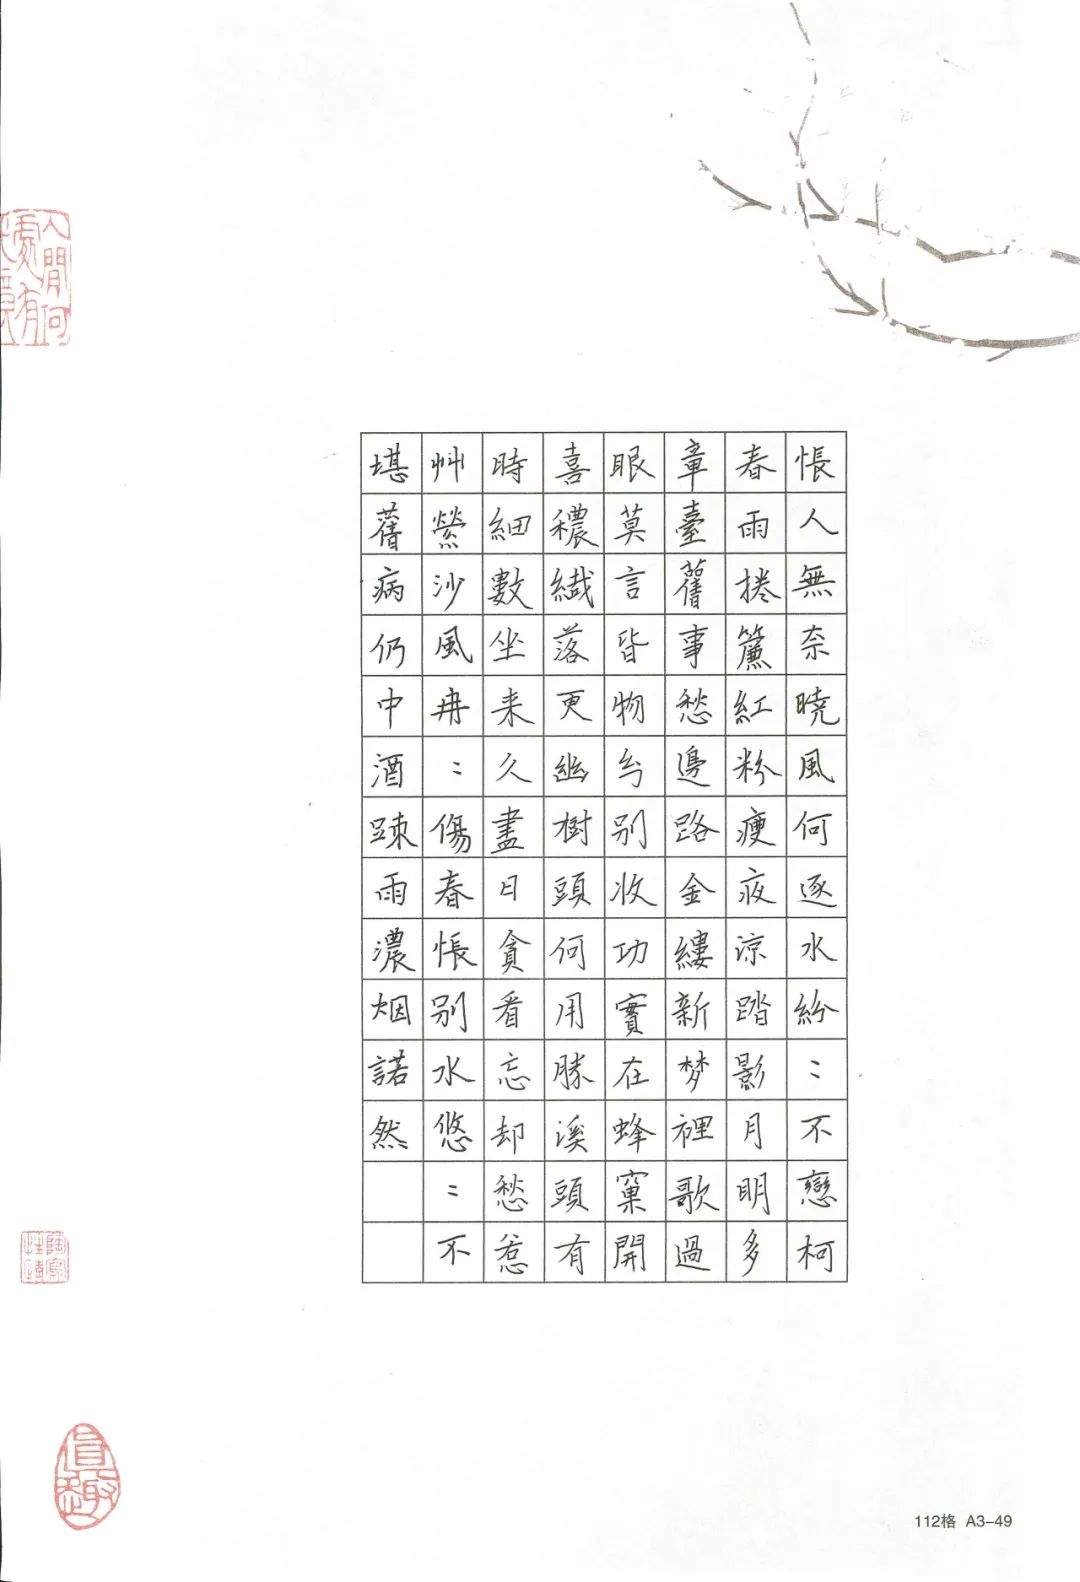 悵人無奈曉風何逐水紛〻不戀柯
春雨捲簾紅粉瘦夜涼踏影月明多
章臺舊事愁邊路金縷新梦裡歌過
眼莫言皆物幻別收功實在蜂窠開
喜穠纖落更幽樹頭何用勝溪頭有
時細數坐来久盡日貪看忘却愁惹
艸縈沙風冉〻傷春悵別水悠〻不
堪舊病仍中酒踈雨濃烟諾然
人間何處有
陶寫性情
真趣
112格 A3-49